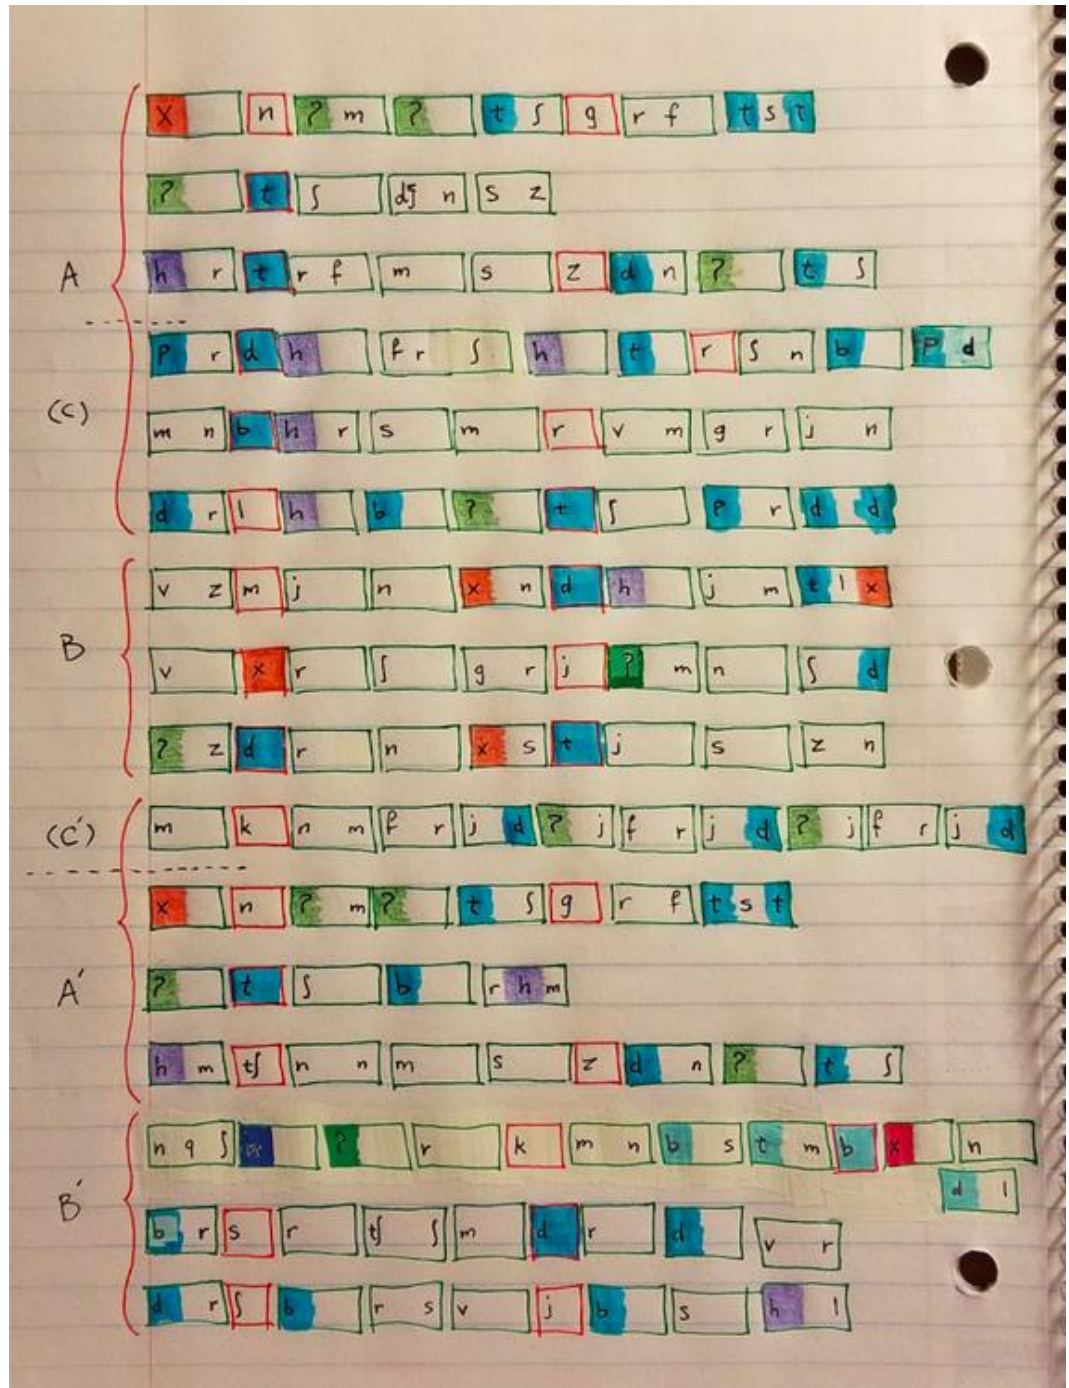 x n ? m ? t ʃ g r f t s t
? t ʃ dʒ n s z
A h r t r f m s z d n ? t ʃ
p r d h f r ʃ h t r ʃ n b p d
(C) m n b h r s m r v m g r j n
d r l h b ? t ʃ p r d d
v z m j n x n d h j m t l x
B v x r ʃ g r j ? m n ʃ d
? z d r n x s t j s z n
(C') m k n m f r j d ? j f r j d ? j f r j d
x n ? m ? t ʃ g r f t s t
A' ? t ʃ b r h m
h m tʃ n n m s z d n ? t ʃ
n q ʃ ? r k m n b s t m b x n
d l
B' b r s r tʃ ʃ m d r d v r
d r ʃ b r s v j b s h l